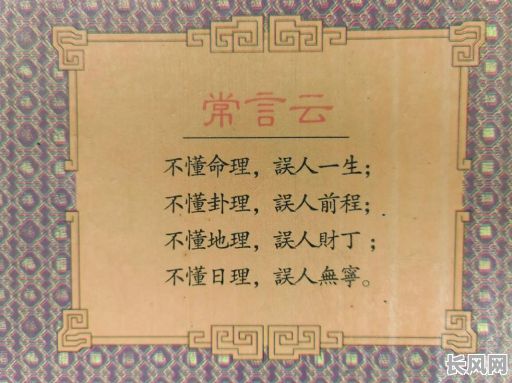 常言云
不懂命理，誤人一生；
不懂卦理，誤人前程；
不懂地理，誤人財丁；
不懂日理，誤人無寧。
长风网